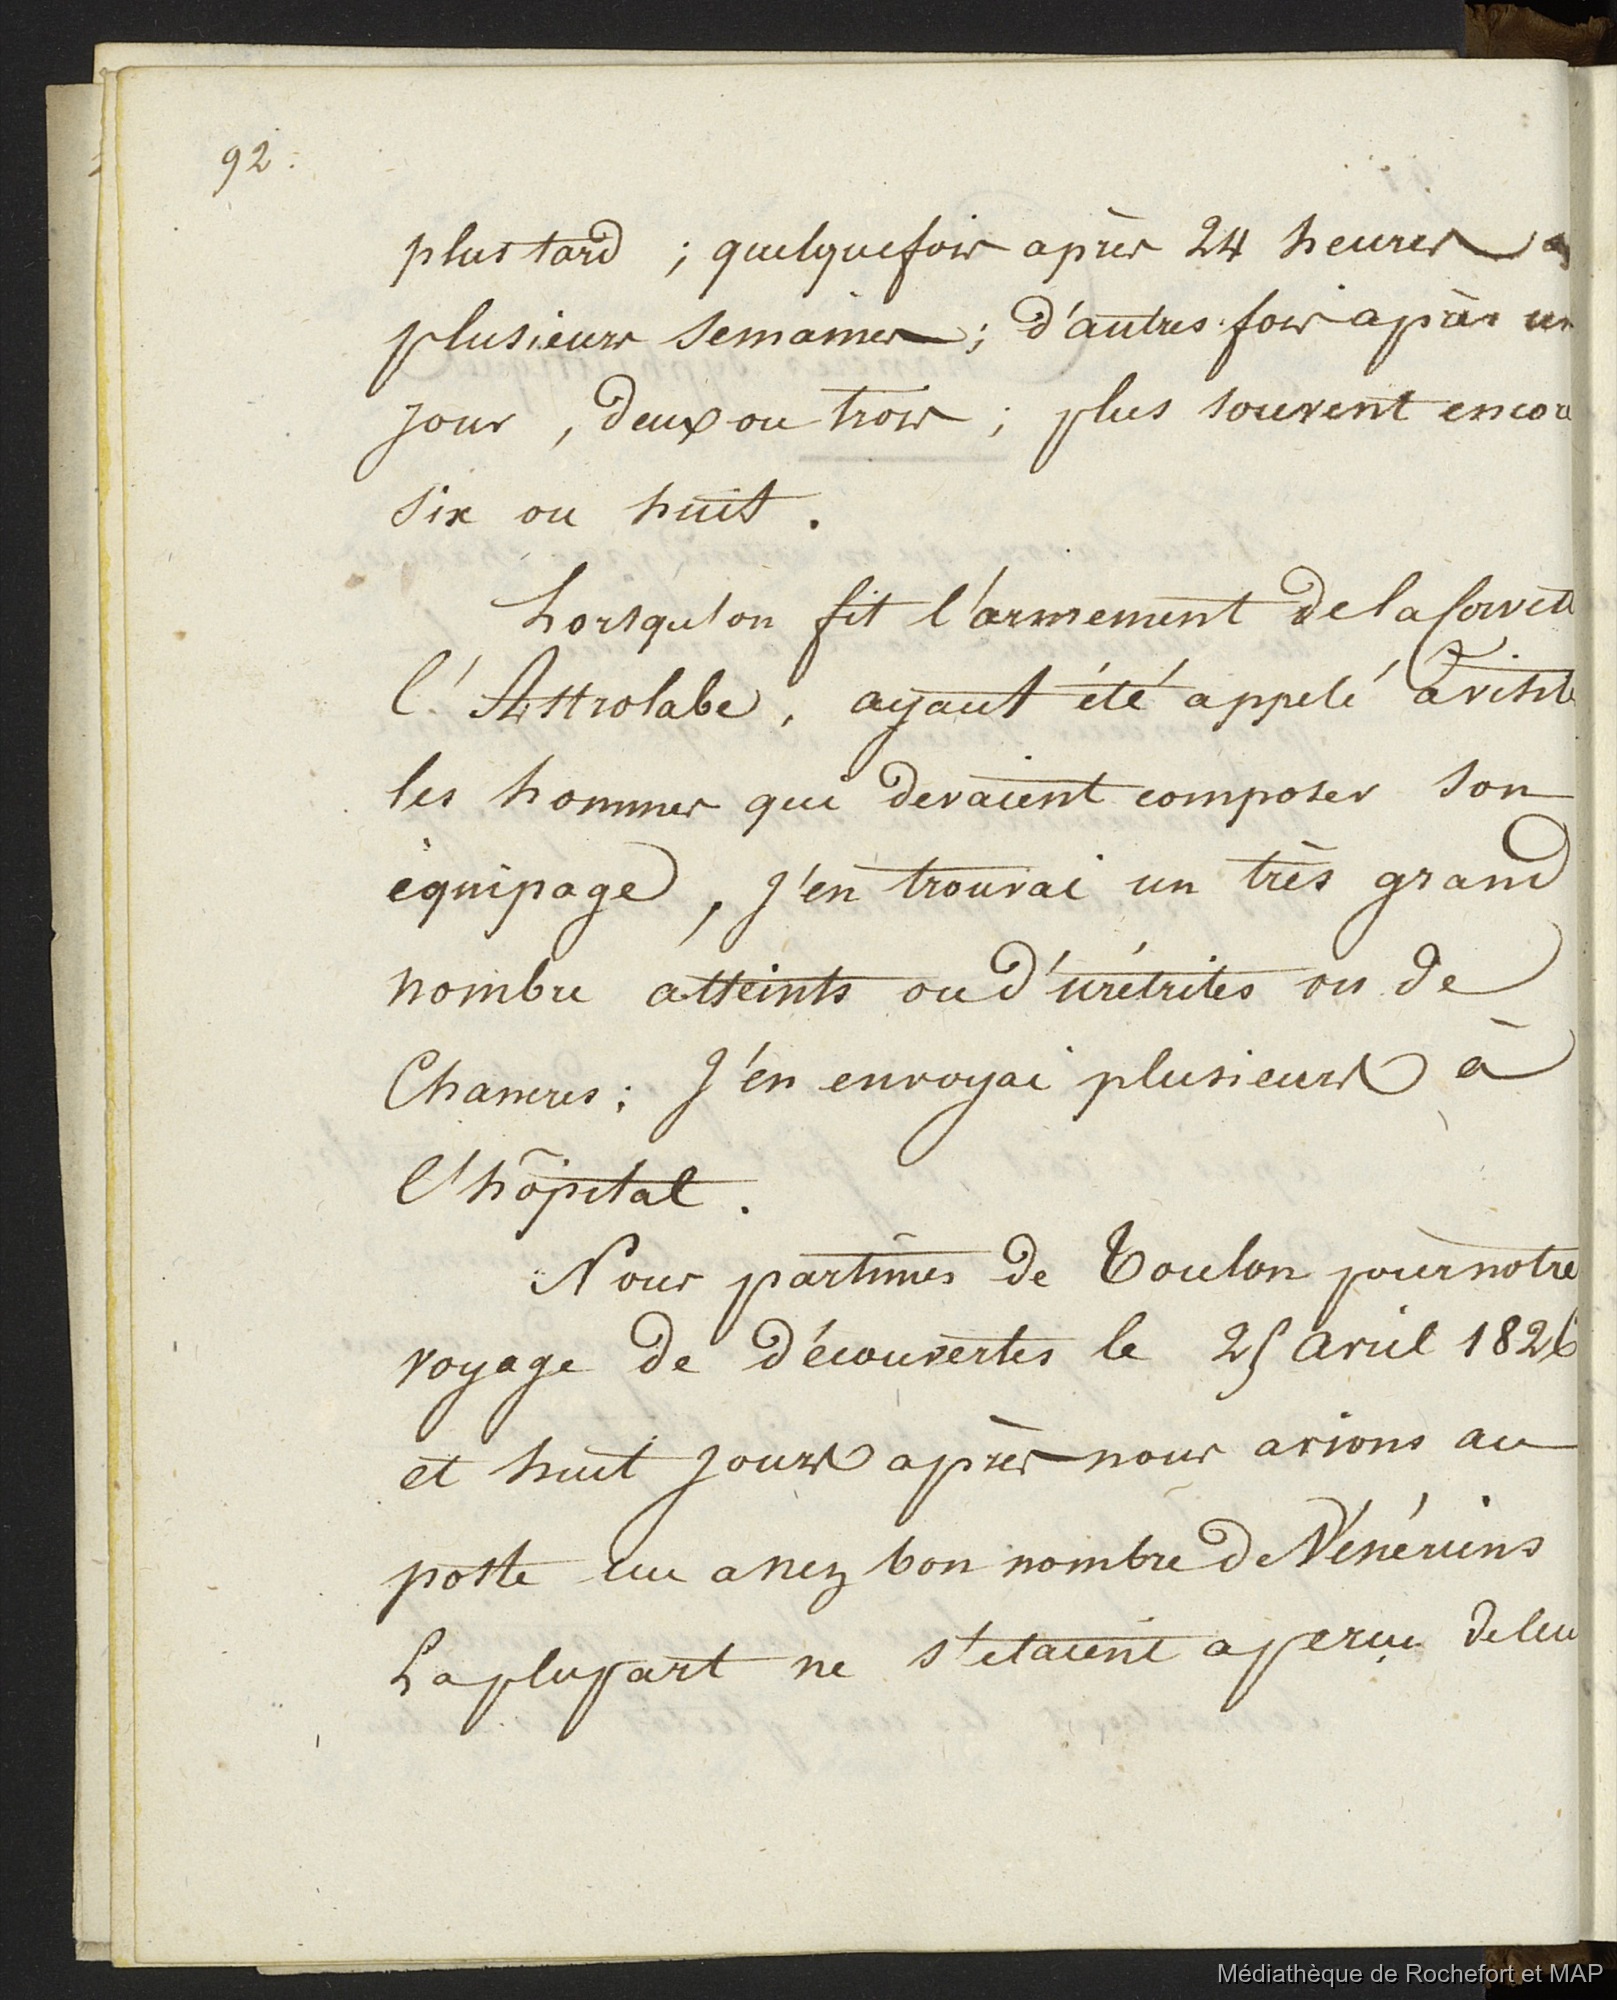 92.
plus tard ; quelquefois après 24 heures
plusieurs semaines ; d'autres fois après un
jour , deux ou trois ; plus souvent encor
six ou huit .
Lorsqu'on fit l'armement de la Corvett
l'Astrolabe , ayant été appelé à visite
les hommes qui devaient composer son
équipage , j'en trouvai un très grand
nombre atteints ou d'urétrites ou de
Chancres ; J'en envoyai plusieurs à
l'hôpital .
Nous partîmes de Toulon pour notre
voyage de découvertes le 25 avril 1826
et huit jours après nous avions au
poste un assez bon nombre de Vénériens
La plupart ne s'étaient aperçu de leu
Médiathèque de Rochefort et MAP